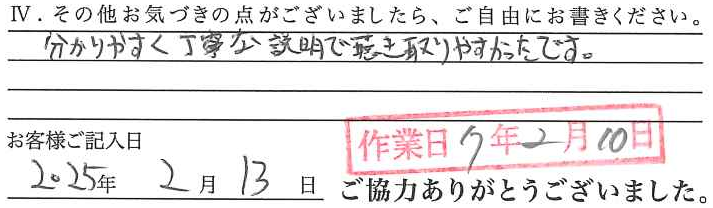 Ⅳ．その他お気づきの点がございましたら、ご自由にお書きください。
分かりやすく丁寧な説明で聴き取りやすかったです。
お客様ご記入日
作業日 7年2月10日
2025年 2月 13日
ご協力ありがとうございました。